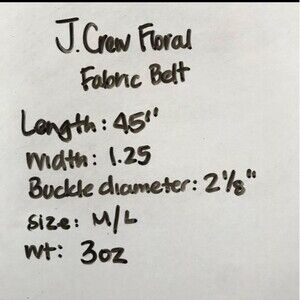 J. Crew Floral
Fabric Belt
Length: 45"
Width: 1.25
Buckle diameter: 2 1/8"
Size: M/L
Wt: 3oz